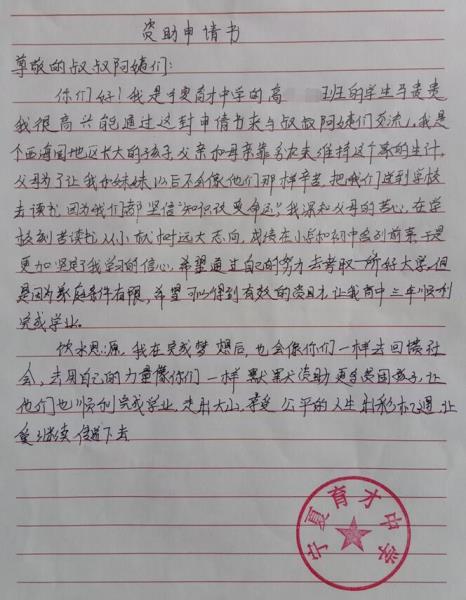 资助申请书
尊敬的叔叔阿姨们:
你们好!我是宁夏育才中学的高 班的学生马贵贵
我很高兴能通过这封申请书来与叔叔阿姨们交流,我是
个西海固地区长大的孩子,父亲和母亲靠务农来维持这个家的生计,
父母为了让我和妹妹以后不会像他们那样辛苦,把我们送到学校
去读书,因为我们都坚信"知识改变命运",我深知父母的苦心,在学
校刻苦读书,从小就树远大志向,成绩在小学和初中名列前茅,于是
更加坚定了我学习的信心,希望通过自己的努力去考取一所好大学。但
是因为家庭条件有限,希望可以得到有效的资助,让我高中三年顺利
完成学业。
饮水思源,我在完成梦想后,也会像你们一样去回馈社
会,去用自己的力量像你们一样默默资助更多贫困孩子,让
他们也顺利完成学业,走出大山,享受公平的人生 让
爱继续传递下去
宁夏育才中学